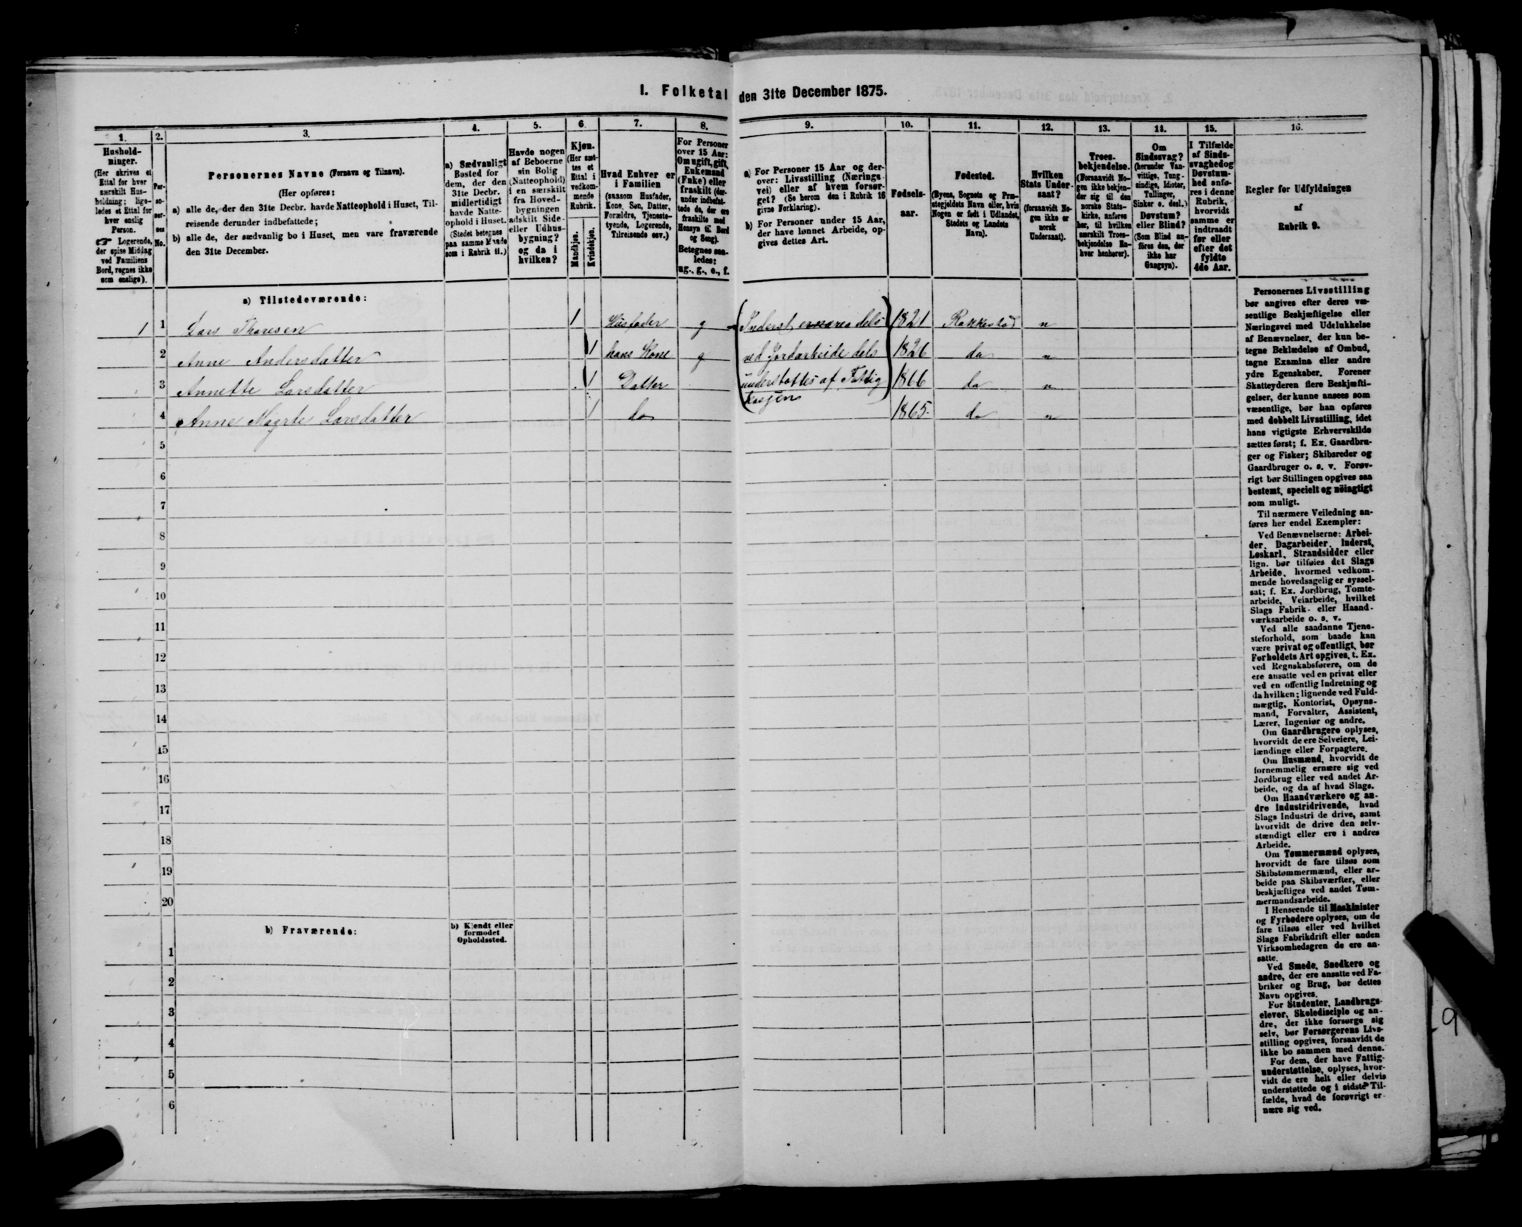 I. Folketal den 31te December 1875.
1. 2. 3. 4. 5. 6. 7. 8. 9. 10. 11. 12. 13. 14. 15. 16.
Hushold-
ninger.
(Her skrives et
Ettal for hver
særskilt Hus-
holdning; lige-
ledes et Ettal for
hver enslig
Person.
☞ Logerende,
der spise Middag
ved Familiens
Bord, regnes ikke
som enslige).
Personernes Navne (Fornavn og Tilnavn).
(Her opføres:
a) alle de, der den 31te Decbr. havde Natteophold i Huset, Til-
reisende derunder indbefattede;
b) alle de, der sædvanlig bo i Huset, men vare fraværende
den 31te December.
a) Sædvanligt
Bosted for
dem, der den
31te Decbr.
midlertidigt
havde Natte-
ophold i Huset.
(Stedet betegnes
paa samme Maade
som i Rubrik 11.)
Havde nogen
af Beboerne
sin Bolig
(Natteophold)
i en særskilt
fra Hoved-
bygningen
adskilt Side-
eller Udhus-
bygning?
og da i
hvilken?
Kjøn.
(Her sæt-
tes et
Ettal i
vedkom-
mende
Rubrik.
Mandkjøn.
Kvindekjøn.
Hvad Enhver er
i Familien
(saasom Husfader,
Kone, Søn, Datter,
Forældre, Tjeneste-
tyende, Logerende,
Tilreisende osv.)
For Personer
over 15 Aar:
Om ugift, gift,
Enkemand
(Enke) eller
fraskilt (der-
under indbefat-
tede de, der ere
fraskilte med
Hensyn til Bord
og Seng).
Betegnes saa-
ledes:
ug., g., e., f.
a) For Personer 15 Aar og der-
over: Livsstilling (Nærings-
vei) eller af hvem forsør-
get? (Se herom den i Rubrik 16
givne Forklaring).
b) For Personer under 15 Aar,
der have lønnet Arbeide, op-
gives dettes Art.
Fødsels-
aar.
Fødested.
(Byens, Sognets og Præ-
stegjeldets Navn eller, hvis
Nogen er født i Udlandet,
Stedets og Landets
Navn).
Hvilken
Stats Under-
saat?
(forsaavidt No-
gen ikke er
norsk
Undersaat).
Troes-
bekjendelse.
(Forsaavidt No-
gen ikke bekjen-
der sig til den
norske Stats-
kirke, anføres
her, til hvilken
særskilt Troes-
bekjendelse En-
hver henhører).
Om
Sindssvag?
(herunder Van-
vittige, Tung-
sindige, Idioter,
Tullinger,
Sinker o. desl.)
Døvstum?
eller Blind?
(Som Blind an-
føres den, der
ikke har
Gangsyn).
I Tilfælde
af Sinds-
svaghed og
Døvstum-
hed anfø-
res i denne
Rubrik,
hvorvidt
samme er
indtraadt
før eller
efter det
fyldte
4de Aar.
Regler for Udfyldningen
af
Rubrik 9.
a) Tilstedeværende:
1 1 Lars Thoresen 1 Husfader g Inderst, ernæres dels 1821 Rakkestad n
2 Anne Andersdatter 1 hans Kone g ved Jordarbeide dels 1826 do n
3 Annette Larsdatter 1 Datter understøttes af Fattig 1866 do n
4 Anne Magrte Larsdatter 1 do kasjen 1865 do n
5
6
7
8
9
10
11
12
13
14
15
16
17
18
19
20
b) Fraværende:
b) Kjendt eller
formodet
Opholdssted.
1
2
3
4
5
6
Personernes Livsstilling
bør angives efter deres væ-
sentlige Beskjæftigelse eller
Næringsvei med Udelukkelse
af Benævnelser, der kun be-
tegne Beklædelse af Ombud,
tagne Examina eller andre
ydre Egenskaber. Forener
Skatteyderen flere Beskjæfti-
gelser, der kunne ansees som
væsentlige, bør han opføres
med dobbelt Livsstilling, idet
hans vigtigste Erhvervskilde
sættes først; f. Ex. Gaardbru-
ger og Fisker; Skibsreder og
Gaardbruger o. s. v. Forøv-
rigt bør Stillingen opgives saa
bestemt, specielt og nöiagtigt
som muligt.
Til nærmere Veiledning an-
føres her endel Exempler:
Ved Benævnelserne: Arbei-
der, Dagarbeider, Inderst,
Løskarl, Strandsidder eller
lign. bør tilføies det Slags
Arbeide, hvormed vedkom-
mende hovedsagelig er syssel-
sat; f. Ex. Jordbrug, Tomte-
arbeide, Veiarbeide, hvilket
Slags Fabrik- eller Haand-
værksarbeide o. s. v.
Ved alle saadanne Tjene-
steforhold, som baade kan
være privat og offentligt, bør
Forholdets Art opgives, t. Ex.
ved Regnskabsførere, om de
ere ansatte ved en privat eller
ved en offentlig Indretning og
da hvilken; lignende ved Fuld-
mægtig, Kontorist, Opsyns-
mand, Forvalter, Assistent,
Lærer, Ingeniør og andre.
Om Gaardbrugere oplyses,
hvorvidt de ere Selveiere, Lei-
lændinge eller Forpagtere.
Om Husmænd, hvorvidt de
fornemmelig ernære sig ved
Jordbrug eller ved andet Ar-
beide, og da af hvad Slags.
Om Haandværkere og an-
dre Industridrivende, hvad
Slags Industri de drive, samt
hvorvidt de drive den selv-
stændigt eller ere i andres
Arbeide.
Om Tømmermænd oplyses,
hvorvidt de fare tilsøs som
Skibstømmermænd, eller ar-
beide paa Skibsværfter, eller
beskjæftiges ved andet Tøm-
mermandsarbeide.
I Henseende til Maskinister
og Fyrbødere oplyses, om de
fare tilsøs eller ved hvilket
Slags Fabrikdrift eller anden
Virksomhedsgren de ere an-
satte.
Ved Smede, Snedkere og
andre, der ere ansatte ved Fa-
briker og Brug, bør dettes
Navn opgives.
For Studenter, Landbrugs-
elever, Skoledisciple og an-
dre, der ikke forsørge sig
selv, bør Forsørgerens Livs-
stilling opgives, forsaavidt de
ikke bo sammen med denne.
For dem, der have Fattig-
understøttelse, oplyses, hvor-
vidt de ere helt eller delvis
understøttede og i sidste Til-
fælde, hvad de forøvrigt er-
nære sig ved.
9